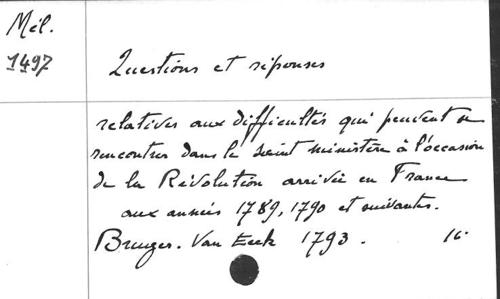 Mél.
1497
Questions et réponses
relatives aux difficultés qui peuvent se
rencontrer dans le saint ministère à l'occasion
de la Révolution arrivée en France
aux années 1789, 1790 et suivantes.
Bruges. Van Eeck 1793. 16.